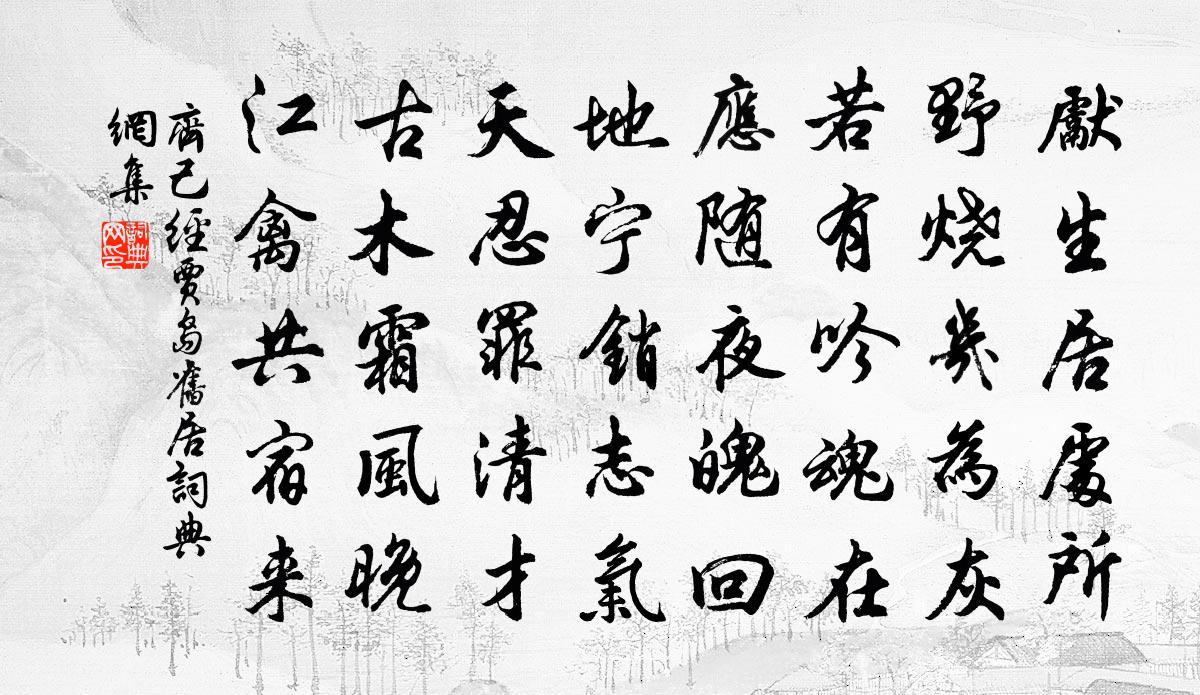 獻生居處所
野烧幾為灰
若有吟魂在
應随夜魄回
地宁銷志氣
天忍罪清才
古木霜風晚
江禽共宿来
齊己經賈島舊居詞典
網集
詞典
网印